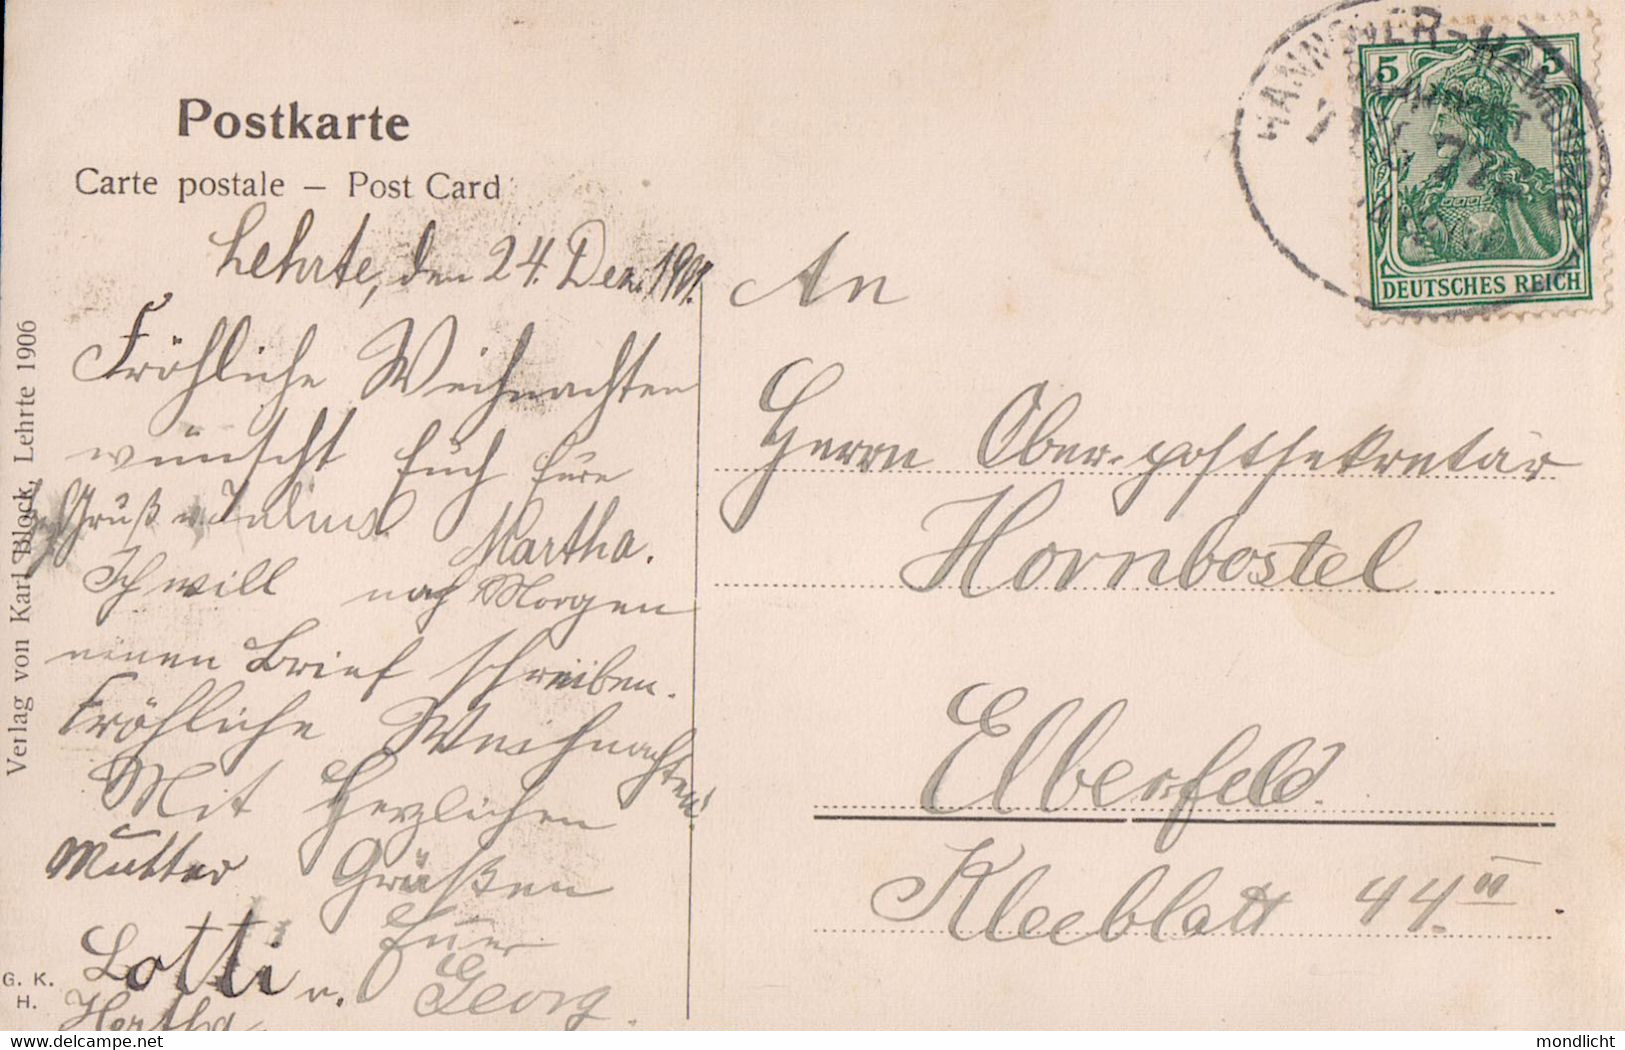 Postkarte
Carte postale – Post Card
Lehrte, den 24. Dez. 1907.
Fröhliche Weihnachten
wünscht Euch Eure
Gruß v. Julius Martha.
Ich will nach Morgen
einen Brief schreiben.
Fröhliche Weihnachten
Mit Herzlichen
Mutter Grüßen
Lotti u. Euer
Hertha Georg
Verlag von Karl Block, Lehrte 1906
G. K.
H.
HANNOVER-HAMBURG
5 5
DEUTSCHES REICH
An
Herrn Ober-postsekretär
Hornbostel
Elberfeld.
Kleeblatt 44. II
www.delcampe.net
mondlicht